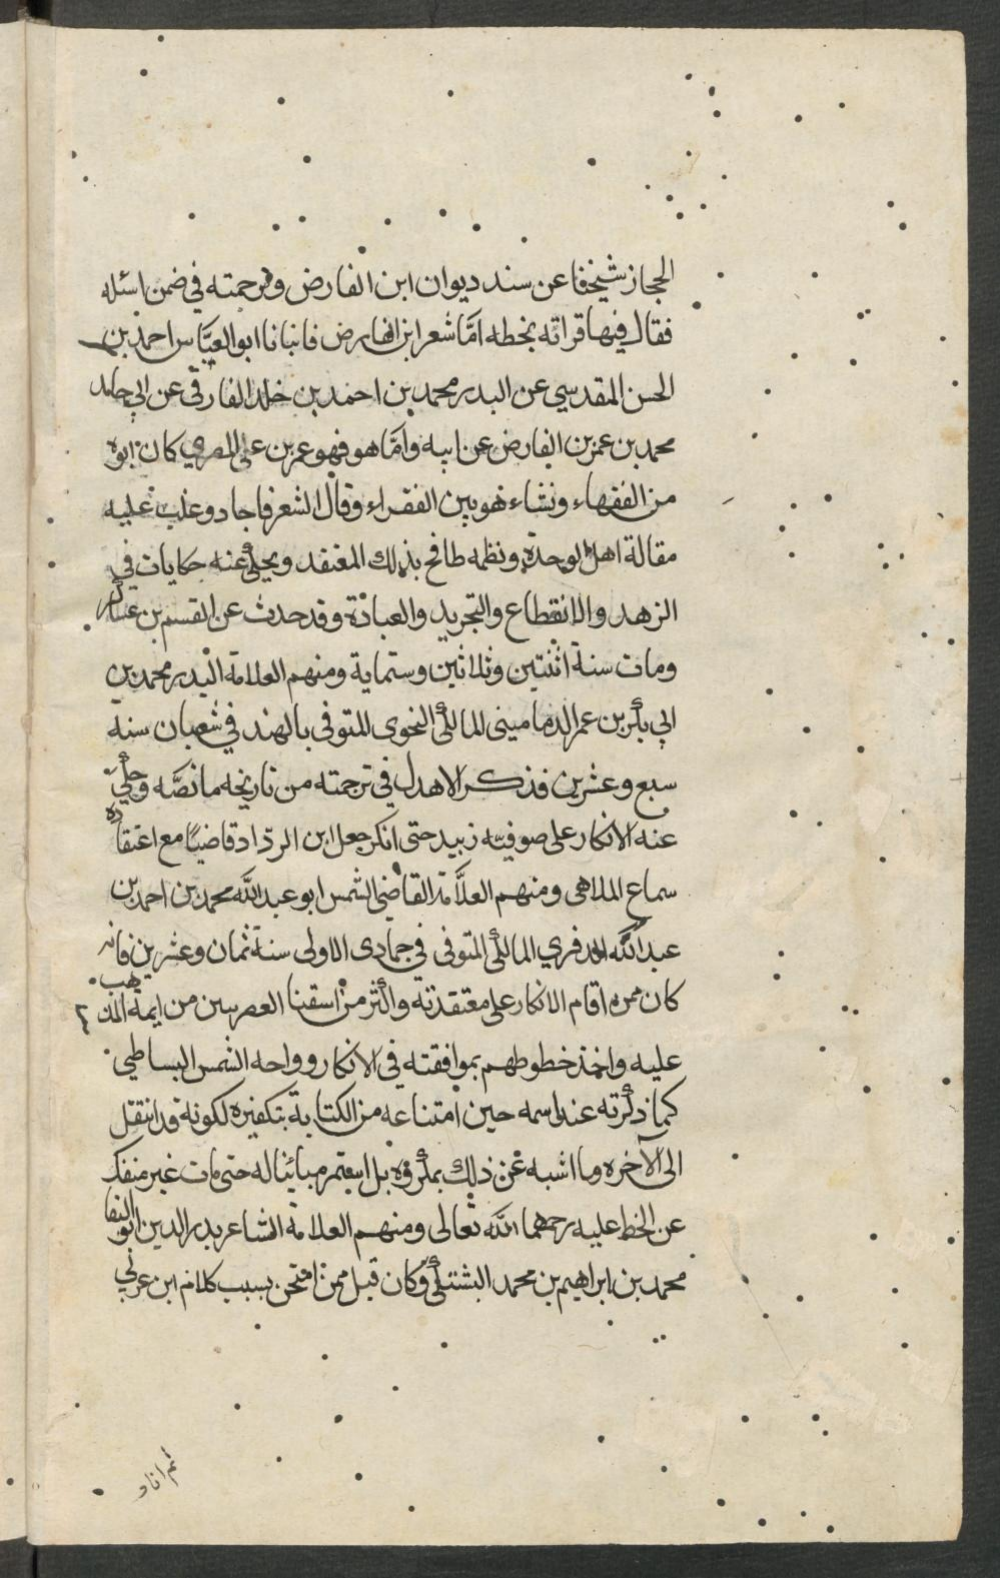 الحجاز شيخنا عن سند ديوان ابن الفارض وترجمته في ضمن اسئله
فقال فيها قراته بخطه امّا شعر ابن الفارض فانبانا ابو العبَّاس احمد بن
الحسن المقدسي عن البدر محمد بن احمد بن خلد الفارقي عن ابي حامد
محمد بن عمر بن الفارض عن ابيه وامّا هو فهو عمر بن علي المصري كان ابوه
من الفقهاء ونشاء هو بين الفقراء وقال الشعر فاجاد وغلب عليه
مقالة اهل الوحدة ونظمه طافح بذلك المعتقد ويحكى عنه حكايات في
الزهد والانقطاع والتجريد والعبادة وقد حدث عن القسم بن عساكر
ومات سنة اثنتين وثلاثين وستماية ومنهم العلامة البدر محمد بن
ابي بكر بن عمر الدماميني المالكى النحوى المتوفى بالهند في شعبان سنة
سبع وعشرين فذكر الاهدل في ترجمته من تاريخه ما نصّه وحكي
عنه الانكار على صوفيه زبيد حتى انكر جعل ابن الردّاد قاضيًا مع اعتقاده
سماع الملاهى ومنهم العلَّامة القاضى الشمس ابو عبد اللّه محمد بن احمد بن
عبد اللّه الدفري المالكى المتوفى في جمادى الاولى سنة ثمان وعشرين فانه
كان ممن اقام الانكار على معتقدته واكثر من اسقنا العصريين من ايمة المذهب
عليه واخذ خطوطهم بموافقته في الانكار وواحه الشمس البساطي
كما ذكرته عند اسمه حين امتناعه من الكتابة بتكفيره لكونه قد انتقل
الى الآخره وما اشبه عن ذلك بمكروه بل استمر مباينا له حتى مات غير منفك
عن الخط عليه رحمهما اللّه تعالى ومنهم العلامة الشاعر بدر الدين ابو البقا
محمد بن ابراهيم بن محمد البشتكى وكان قبل ممن امتحن بسبب كلام ابن عربي
ثم اناو